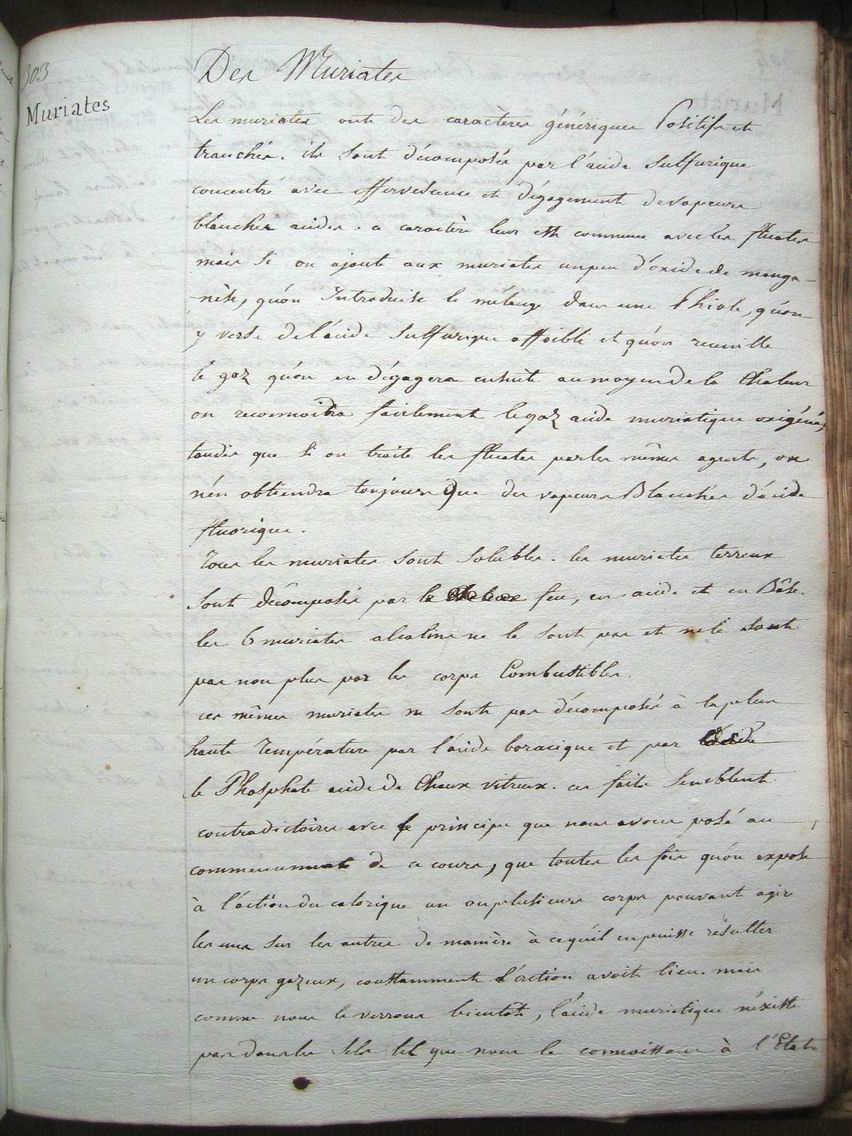 303
Muriates
Des Muriates
Les muriates ont des caracteres génériques Positifs et
tranchés. ils sont décomposés par l'acide sulfurique
concentre avec effervescence et dégagement de vapeurs
blanches acides. ce caractère leur est commun avec les fluates
mais si on ajoute aux muriates un peu d'oxide de manga-
nèse, qu'on Introduise le mélange dans une Phiole, qu'on
y verse de l'acide sulfurique affoibli et qu'on recueille
le gaz qu'on en dégagera ensuite au moyen de la Chaleur
on reconnoitra facilement le gaz acide muriatique oxigéné,
tandis que si on traite les fluates par les mêmes agents, on
n'en obtiendra toujours que des vapeurs Blanches d'acide
fluorique.
Tous les muriates sont solubles. les muriates terreux
sont décomposés par le feu, en acide et en Bâse.
les 6 muriates alcalins ne le sont pas et ne le sont
pas non plus par les corps Combustibles.
ces mêmes muriates ne sont pas décomposés à la plus
haute Température par l'acide boracique et par
le Phosphate acide de Chaux vitreux. ces faits semblent
contradictoires avec le principe que nous avons posé au
commencement de ce cours, que toutes les fois qu'on expose
à l'action du calorique un ou plusieurs corps pouvant agir
les uns sur les autres de manière à ce qu'il en puisse résulter
un corps gazeux, constamment l'action avoit lieu. mais
comme nous le verrons bientôt, l'acide muriatique n'éxiste
pas dans les sels tel que nous le connoissons à l'Etat